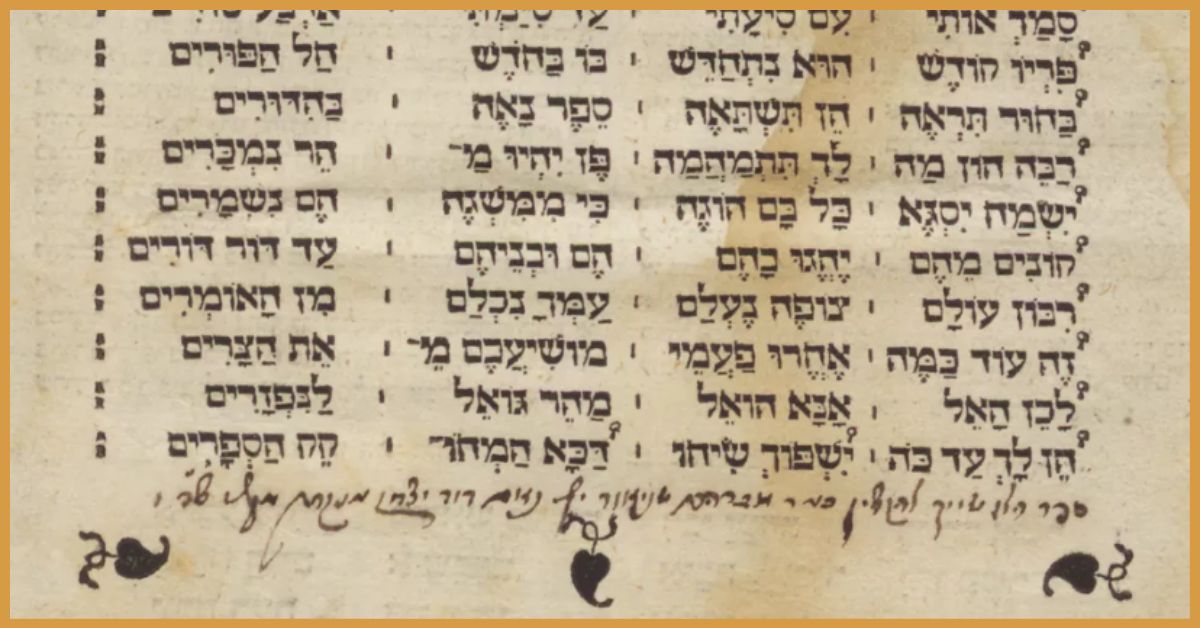 סָמַךְ אוֹתִי · עִם סִיעָתִי · עַד סִיַּמְתִּי
פִּרְיוֹ קוֹדֶשׁ · הוּא נִתְחַדֵּשׁ · בּוֹ בַּחֹדֶשׁ · חַל הַפּוּרִים :
בַּחוּר תִּרְאֶה · הֵן תִּשְׁתָּאֶה · סֵפֶר נָאֶה · בַּהִדּוּרִים :
רַבֵּה הוֹן מַה · לָךְ תִּתְמַהְמַה · פֶּן יִהְיוּ מַ־ · הֵר נִמְכָּרִים :
יִשְׂמַח יִסְגֶּא · כָּל בָּם הוֹגֶה · כִּי מִמִּשְׁגֶּה · הֵם נִשְׁמָרִים :
קוֹנִים מֵהֶם · יֶהֱגוּ בָהֶם · הֶם וּבְנֵיהֶם · עַד דּוֹר דּוֹרִים :
רִבּוֹן עוֹלָם · צוֹפֶה נֶעְלַם · עַמְּךָ נִכְלַם · מִן הָאוֹמְרִים :
זֶה עוֹד כַּמֶּה · אֶחֱרוּ פַּעֲמֵי · מוֹשִׁיעֲכֶם מֵ־ · אֵת הַצָּרִים :
לָכֵן הָאֵל · אָנָּא הוֹאֵל · מַהֵר גּוֹאֵל · לַנִּפְזָרִים :
הֵן לָךְ עַד כֹּה · יִשְׁפּוֹךְ שִׂיחוֹ · דַּכָּא הַמְּחוֹ־ · קֵק הַסְּפָרִים :
ספר הלז שייך אברהם יצחק